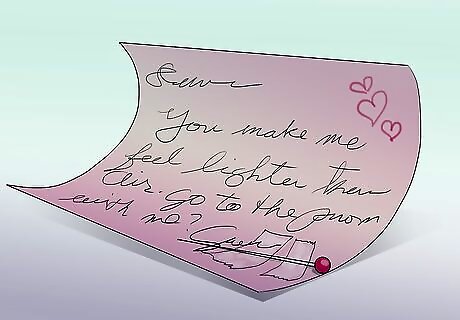 You make me
feel lighter then
air. Go to the prom
with me?